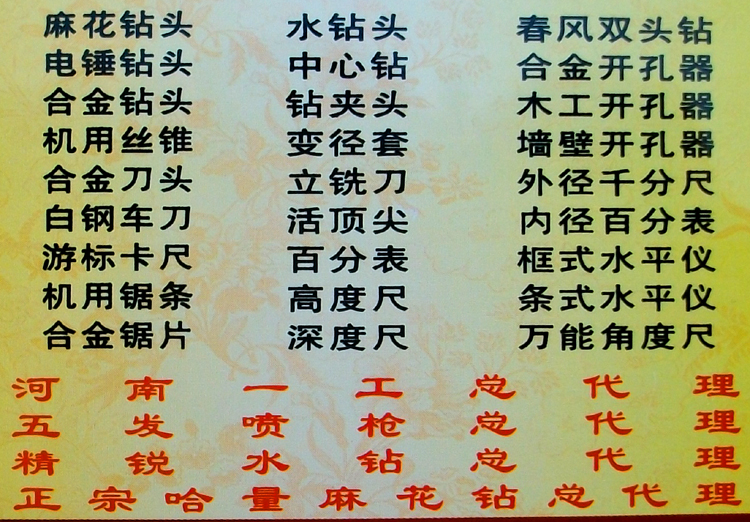 麻花钻头 水钻头 春风双头钻
电锤钻头 中心钻 合金开孔器
合金钻头 钻夹头 木工开孔器
机用丝锥 变径套 墙壁开孔器
合金刀头 立铣刀 外径千分尺
白钢车刀 活顶尖 内径百分表
游标卡尺 百分表 框式水平仪
机用锯条 高度尺 条式水平仪
合金锯片 深度尺 万能角度尺
河南一工总代理
五发喷枪总代理
精锐水钻总代理
正宗哈量麻花钻总代理